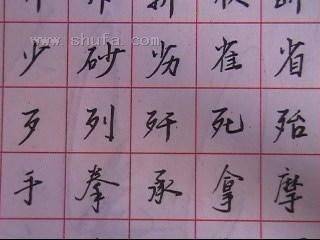 www.shufa.com
少砂劣雀省
歹列歼死殆
手拳承拿摩